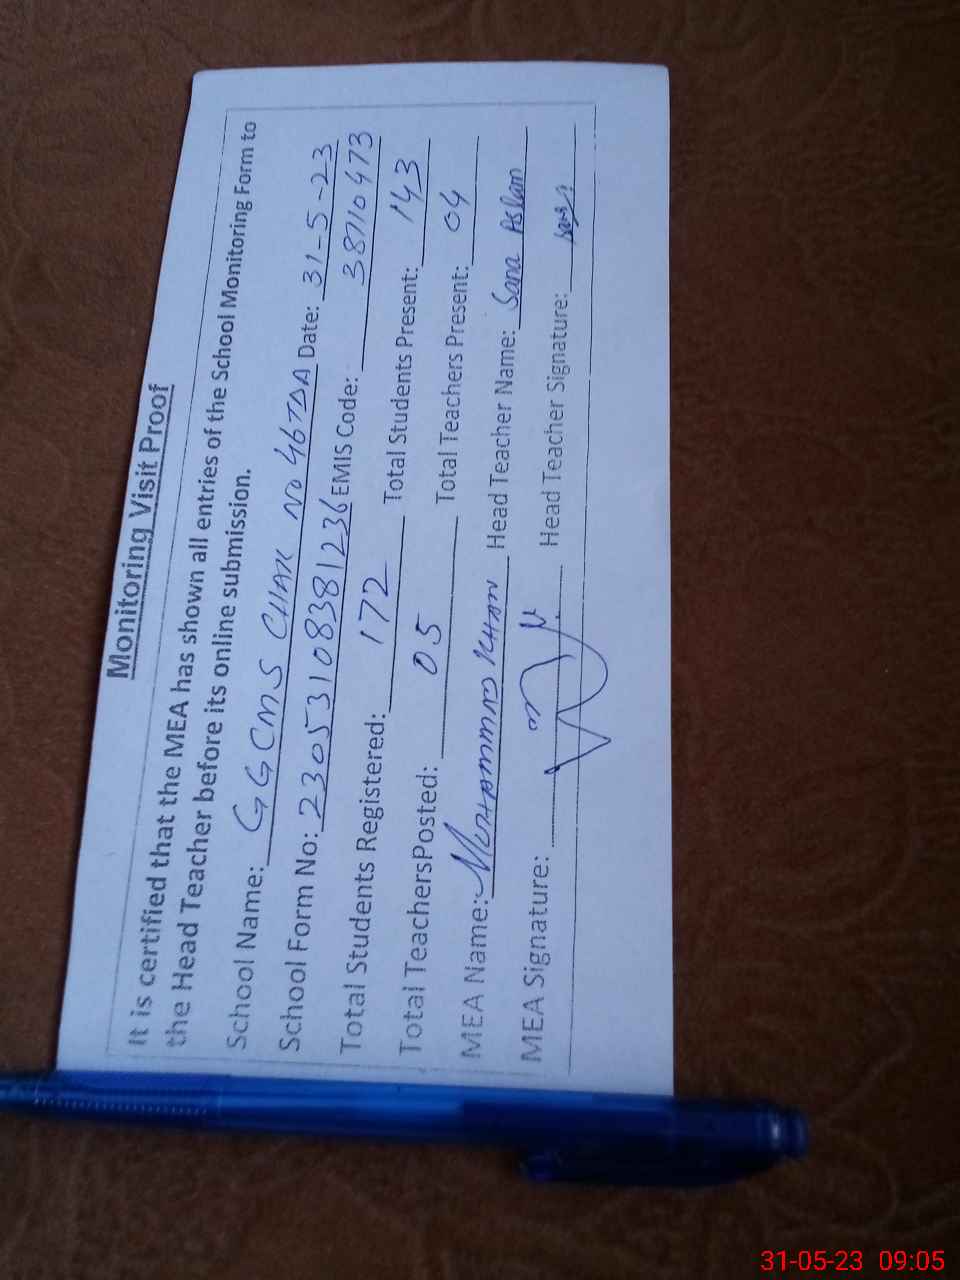 Monitoring Visit Proof
It is certified that the MEA has shown all entries of the School Monitoring Form to
the Head Teacher before its online submission.
School Name: GGCMS CHAK NO 46TDA Date: 31-5-23
School Form No: 23053108381236 EMIS Code: 38710473
Total Students Registered: 172 Total Students Present: 143
Total TeachersPosted: 05 Total Teachers Present: 04
MEA Name: MUHAMMAD KHAN Head Teacher Name: Sana Aslam
MEA Signature: Head Teacher Signature:
31-05-23 09:05